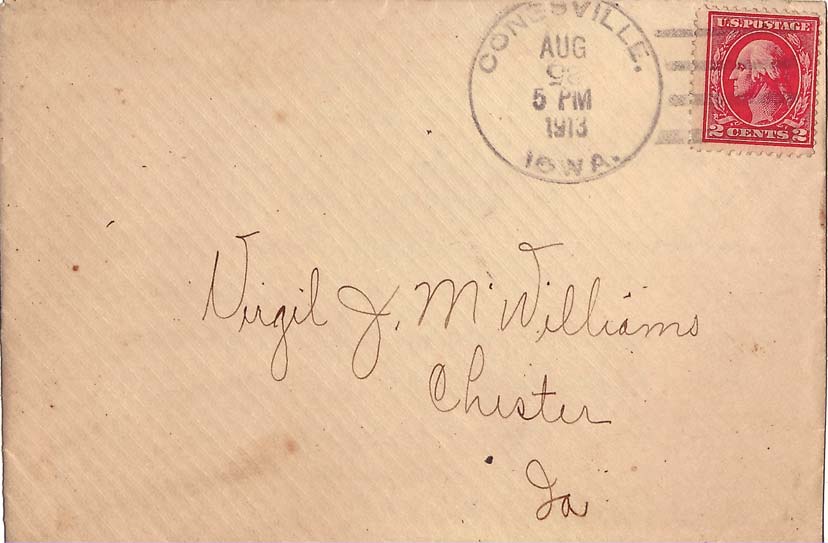 CONESVILLE.
AUG
5 PM
1913
IOWA.
U.S. POSTAGE
2 CENTS 2
Virgil J. McWilliams
Chester
Ia